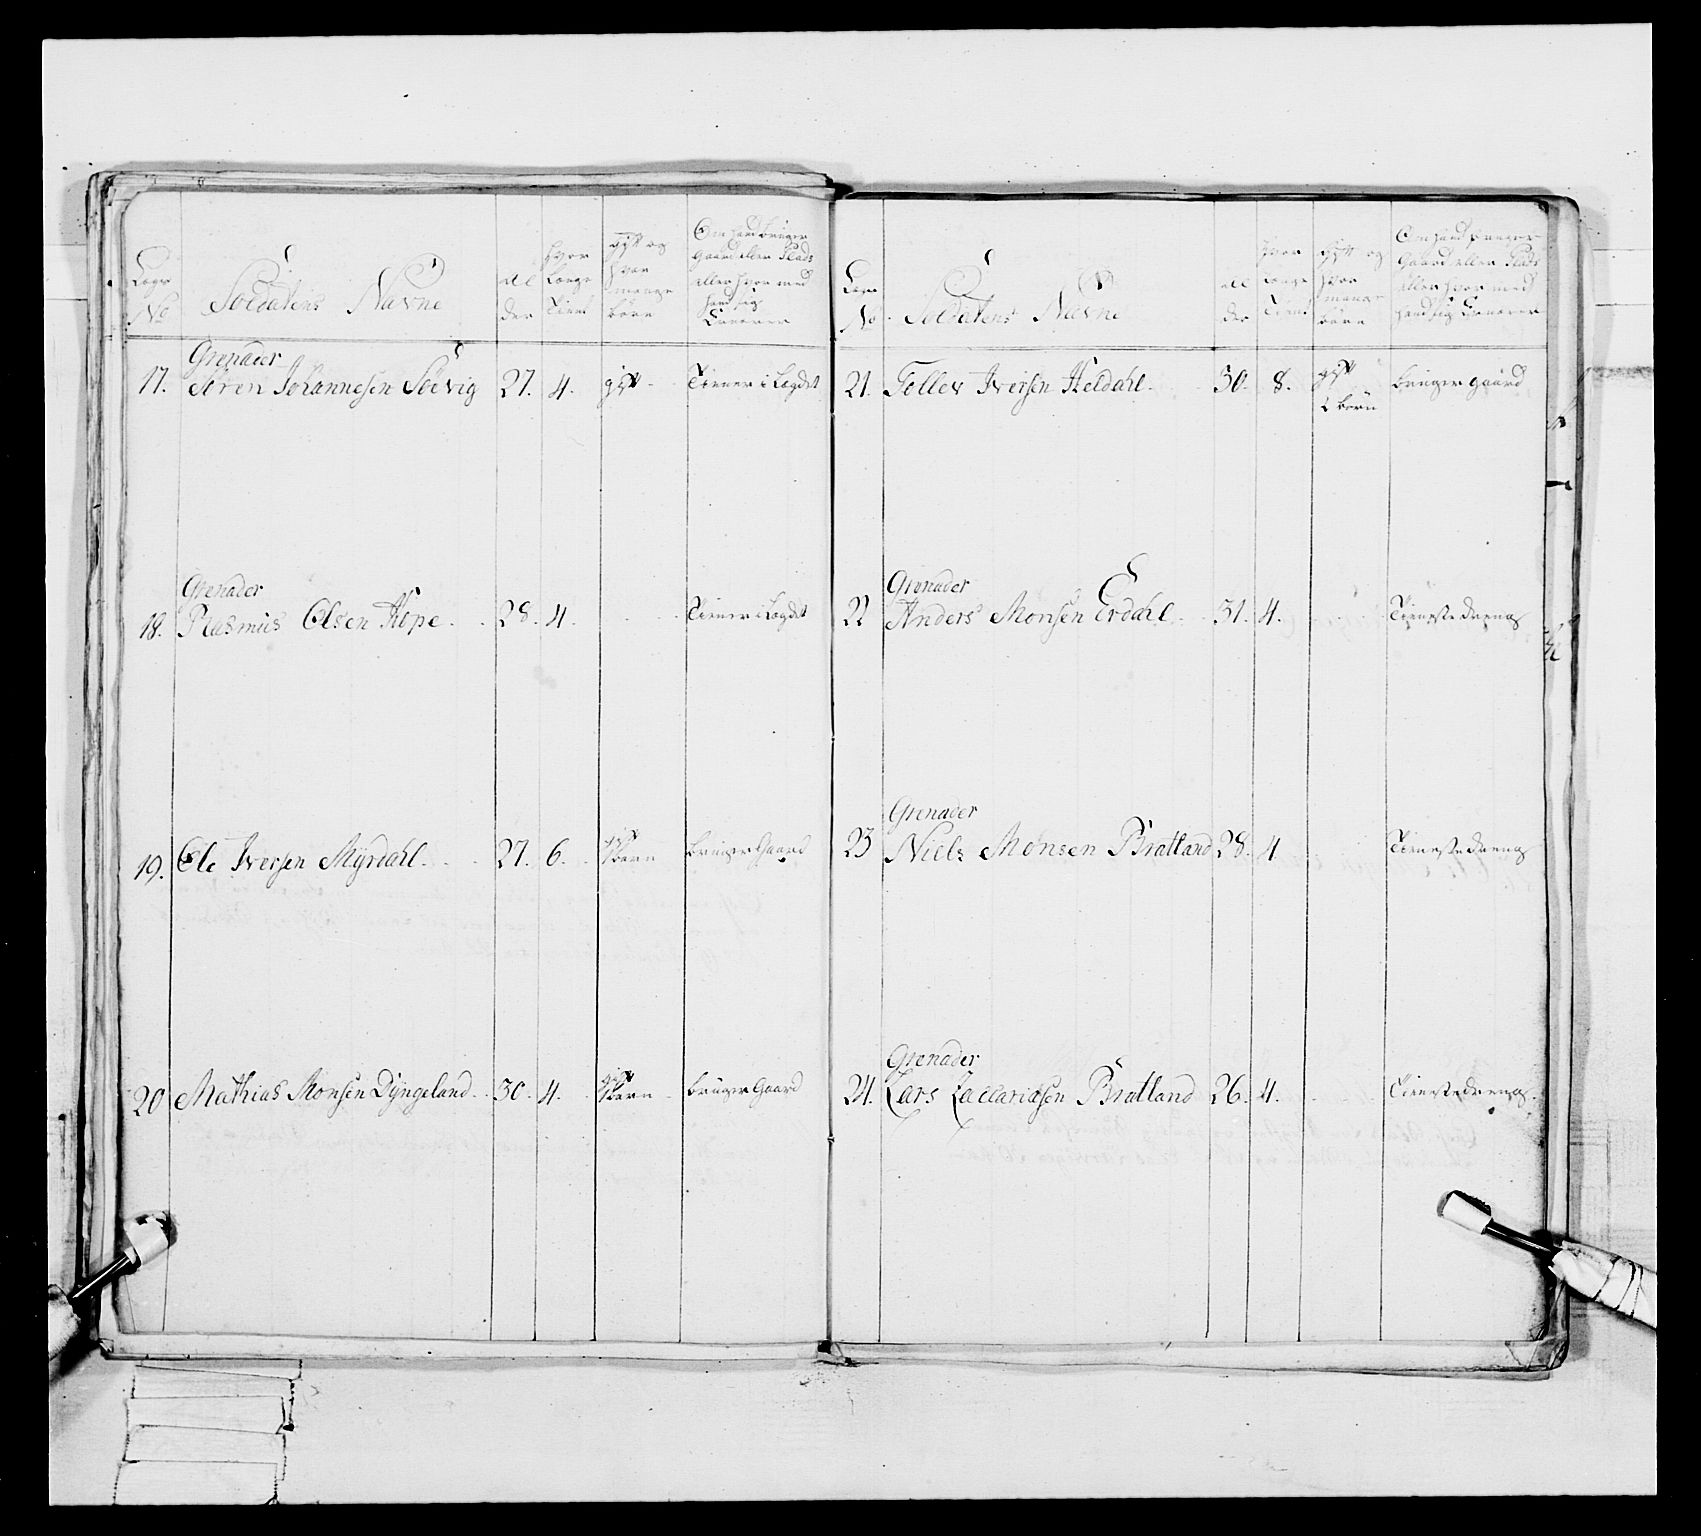 Lægs No
Soldatens Navne
Al der
hvor Længe Tient
gift og hvor mange børn
Om hand bruger Gaard eller Plads eller hvor med hand sig Ernærer
Grenader
17. Sören Johannesen Söevig 27. 4. gift Tiener i Lægdet
Grenader
18. Rasmus Olsen Hope 28. 4. Tiener i Lægdet
19. Ole Iversen Myrdahl. 27. 6. gift 1 Barn bruger Gaard
20 Mathias Monsen Dyngeland 30. 4. gift 1 Barn bruger Gaard
Lægs No.
Soldatens Navne
Al der
hvor Længe Tient
gift og hvor mange börn
Om hand bruger Gaard eller Plads eller hvor med hand sig Ernærer
21. Tollev Iversen Heldahl. 30. 8. gift 2 börn bruger gaard
Grenader
22 Anders Monsen Erdahl 31. 4. Tieneste dreng
Grenader
23 Niels Monsen Bratland 28. 4 Tieneste dreng
Grenader
24. Lars Zaccariasen Bratland 26. 4. Tieneste dreng